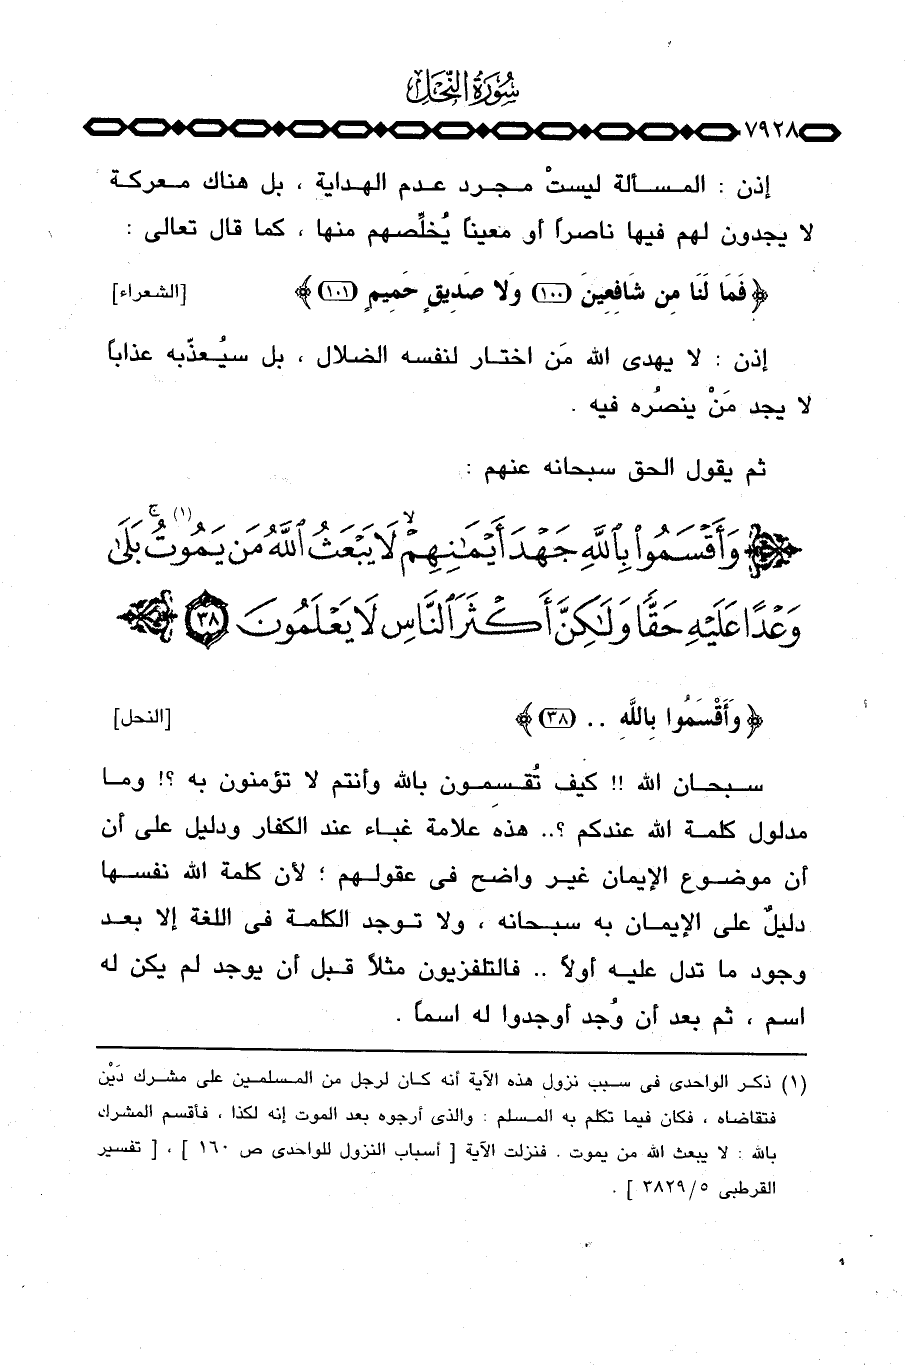 سُورَةُ النَّحْلِ
٧٩٢٨
إذن : المسألة ليستْ مجرد عدم الهداية ، بل هناك معركة
لا يجدون لهم فيها ناصراً أو معيناً يُخلِّصهم منها ، كما قال تعالى :
﴿ فَمَا لَنَا مِن شَافِعِينَ (١٠٠) وَلَا صَدِيقٍ حَمِيمٍ (١٠١) ﴾ [الشعراء]
إذن : لا يهدى الله مَن اختار لنفسه الضلال ، بل سيُعذّبه عذاباً
لا يجد مَنْ ينصُره فيه .
ثم يقول الحق سبحانه عنهم :
﴿ وَأَقْسَمُوا۟ بِٱللَّهِ جَهْدَ أَيْمَـٰنِهِمْ ۙ لَا يَبْعَثُ ٱللَّهُ مَن يَمُوتُ (١) ۚ بَلَىٰ
وَعْدًا عَلَيْهِ حَقًّا وَلَـٰكِنَّ أَكْثَرَ ٱلنَّاسِ لَا يَعْلَمُونَ ٣٨ ﴾
﴿ وَأَقْسَمُوا بِاللَّهِ .. (٣٨) ﴾ [النحل]
سبحان الله !! كيف تُقسمون بالله وأنتم لا تؤمنون به ؟! وما
مدلول كلمة الله عندكم ؟.. هذه علامة غباء عند الكفار ودليل على أن
أن موضوع الإيمان غير واضح فى عقولهم ؛ لأن كلمة الله نفسها
دليلٌ على الإيمان به سبحانه ، ولا توجد الكلمة فى اللغة إلا بعد
وجود ما تدل عليه أولاً .. فالتلفزيون مثلاً قبل أن يوجد لم يكن له
اسم ، ثم بعد أن وُجد أوجدوا له اسماً .
(١) ذكر الواحدى فى سبب نزول هذه الآية أنه كان لرجل من المسلمين على مشرك دَيْن
فتقاضاه ، فكان فيما تكلم به المسلم : والذى أرجوه بعد الموت إنه لكذا ، فأقسم المشرك
بالله : لا يبعث الله من يموت . فنزلت الآية [ أسباب النزول للواحدى ص ١٦٠ ] ، [ تفسير
القرطبى ٣٨٢٩/٥ ] .